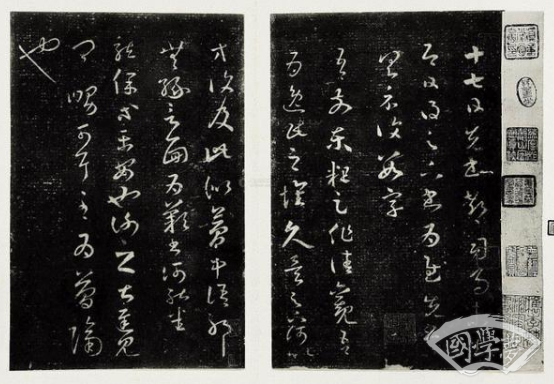 十七日先書郗司馬未去
即日得足下書為慰先書以
具示復數字
吾前東粗足作佳觀吾
為逸民之懷久矣足下何以
方復及此似夢中語耶
無緣言面為歎書何能悉
龍保等平安也謝之甚遲見
卿舅可耳至為簡隔
也
國學夢